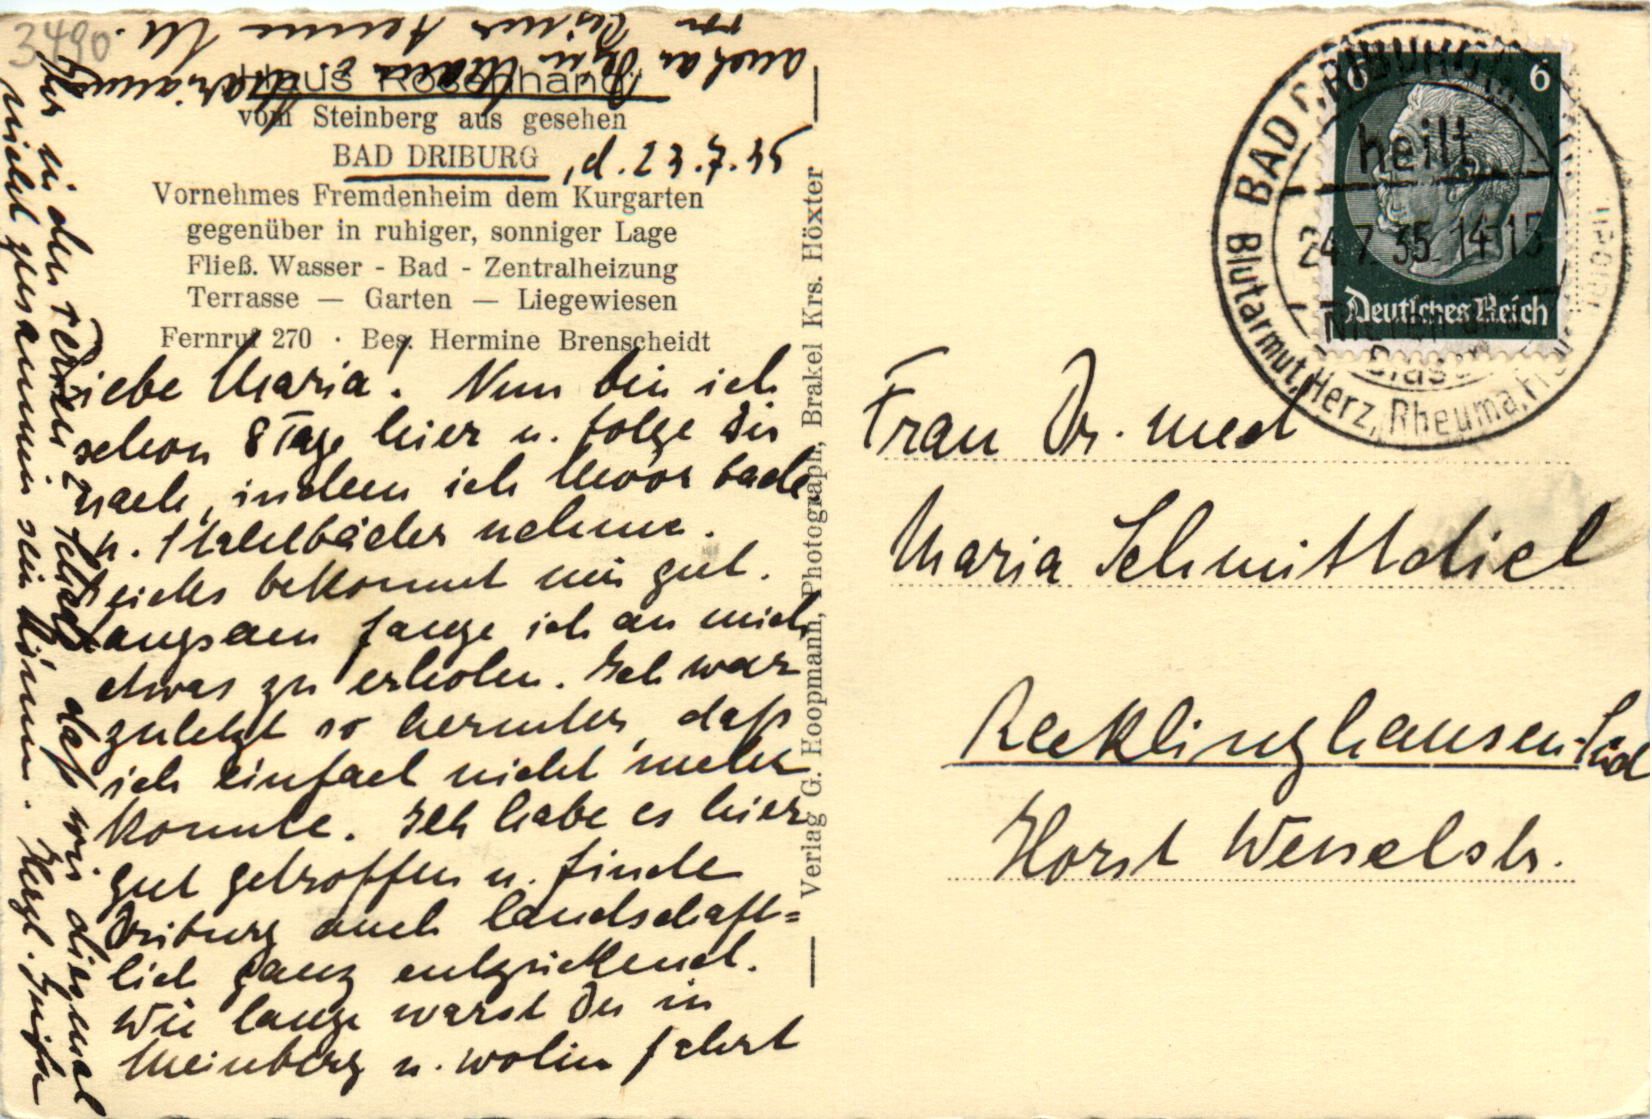 3490
Haus Rosenhang
vom Steinberg aus gesehen
BAD DRIBURG, d. 23.7.35
Vornehmes Fremdenheim dem Kurgarten
gegenüber in ruhiger, sonniger Lage
Fließ. Wasser - Bad - Zentralheizung
Terrasse — Garten — Liegewiesen
Fernruf 270 · Bes. Hermine Brenscheidt
Liebe Maria! Nun bin ich
schon 8 Tage hier u. folge Dir
nach, indem ich Moor bade
u. Stahlbäder nehme.
Beides bekommt mir gut.
Langsam fange ich an mich
etwas zu erholen. Ich war
zuletzt so herunter, daß
ich einfach nicht mehr
konnte. Ich habe es hier
gut getroffen u. finde
Driburg auch landschaft=
lich ganz entzückend.
Wie lange warst Du in
Meinberg u. wohin fahrt
Ihr in den Ferien? Schade daß wir diesmal
nicht zusammen sein können. Herzl. Grüße
auch an Deinen Mann u. Marianne
von Deiner
Verlag G. Hoopmann, Photograph, Brakel Krs. Höxter
6 6
Deutsches Reich
BAD DRIBURG
heilt
24.7.35.14-15
Nieren und
Blase
Blutarmut, Herz, Rheuma,
Frau Dr. med
Maria Schmittdiel
Recklinghausen-Süd
Horst Wesselstr.